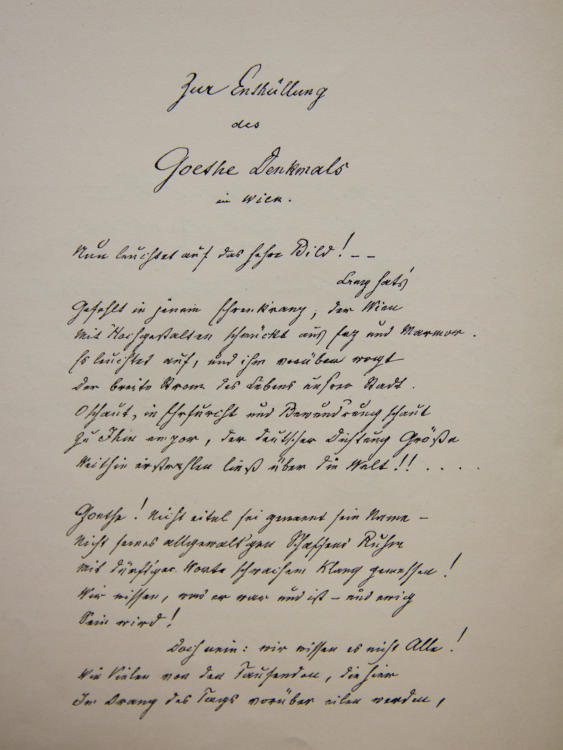 Zur Enthüllung
des
Goethe Denkmals
in Wien.
Nun leuchtet auf das hehre Bild! – –
Lang hat's
Gefehlt in jenem Ehrenkranz, der Wien
Mit Hochgestalten schmückt aus Erz und Marmor.
Es leuchtet auf, und ihm vorüber wogt
Der breite Strom des Lebens unsrer Stadt.
O schaut, in Ehrfurcht und Bewundrung schaut
Zu Ihm empor, der deutscher Dichtung Größe
Weithin erstrahlen ließ über die Welt!! . . . .
Goethe! Nicht eitel sei genannt sein Name –
Nicht seines allgewalt'gen Schaffens Ruhm
Mit dürftiger Worte schwachem Klang gemessen!
Wir wissen, was er war und ist – und ewig
Sein wird!
Doch nein: wir wissen es nicht Alle!
Wie Viele von den Tausenden, die hier
Im Drang des Tags vorüber eilen werden,